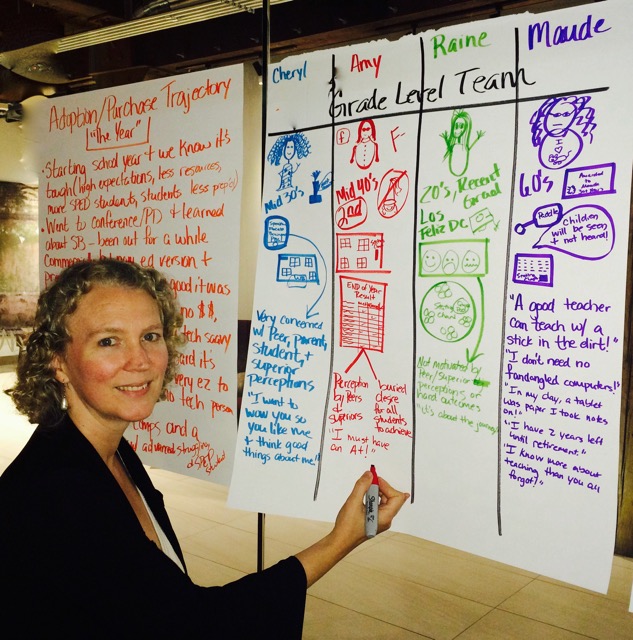 Adoption/Purchase Trajectory
"The Year"
• Starting school year + we know it's
tough (high expectations, less resources,
more SPED students, students less prep'd)
• Went to conference/PD + learned
about SB - been out for a while
ed version +
good it was
no $$,
tech scary
it's
very ez to
no tech person
and a
Cheryl
Amy
Raine
Maude
Grade Level Team
Mid 30's
Very concerned
w/ Peer, parent,
student, +
superior
perceptions
"I want to
wow you so
you like me
+ think good
things about me!"
F
Mid 40's
2nd
END of Year
Result
Perception
by Peers
& superiors
buried
desire
for all
students
to achieve
"I must have
an A+!"
20's, Recent
Grad
Los
Feliz DC
Not motivated by
Peer/Superior
perceptions or
hard outcomes
"it's about the journey"
60's
Awarded
to
Maude
Paddle
Children
will be seen
+ not heard!
"A good teacher
can teach w/ a
stick in the dirt!"
"I don't need no
fandangled computers!"
"In my day, a tablet
was paper I took notes
on!"
"I have 2 years left
until retirement."
"I know more about
teaching than you all
forgot!"
Sharpie